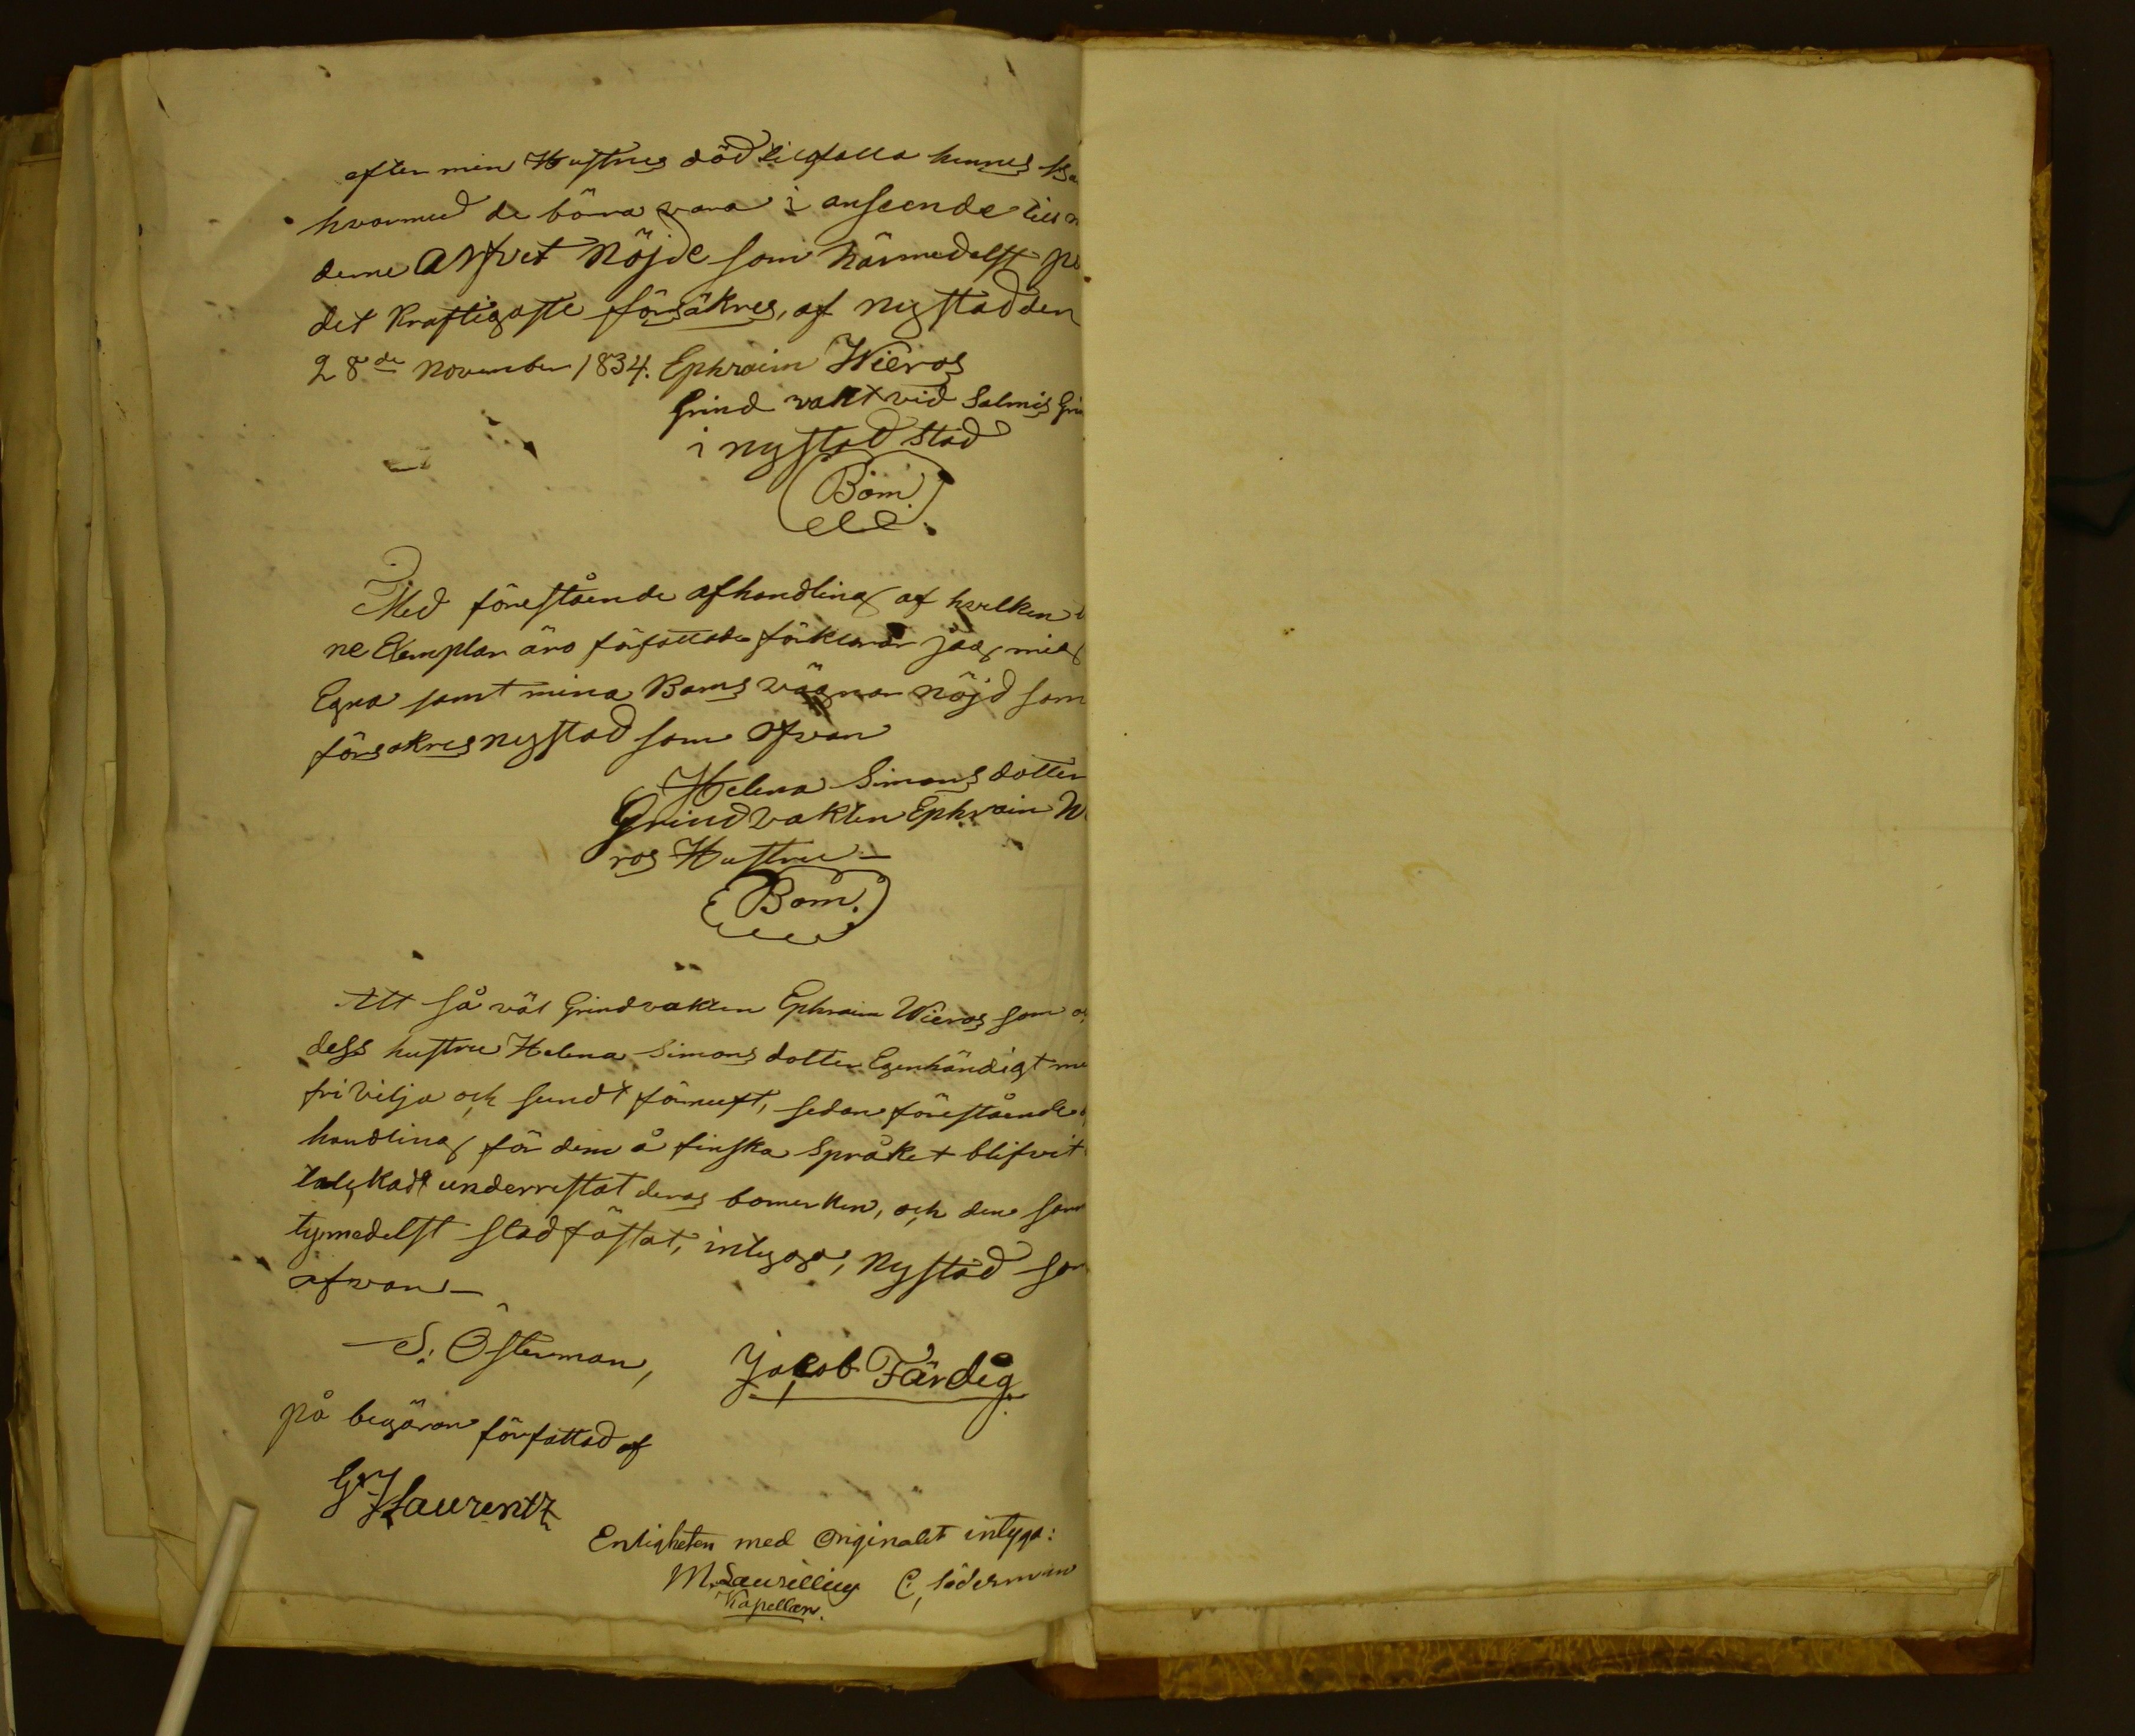 efter min Hustrus död tillfalla hennes
hvarmed de böra vara i anseende till
denne Arfvet nöjde som härmedelst på
det kraftigaste försäkres, af nystad den
28de november 1834. Ephraim Wieros
Grind vakt vid Salmis
i nystad stad
Bom
Med förestående afhandling af hvilken
ne Exemplar äro författade förklarar jag mig
Egna samt mina Barns vägnar nöjd som
försäkres nystad som ofvan
Helena Simons dotter
Grindvakten Ephraim
ros Hustru —
Bom.
Att så väl Grindvakten Ephraim Wieros som
dess hustru Helena Simons dotter Egenhändigt
fri vilja och sundt förnuft, sedan förestående
handling för dem å finska Språket blifvit
underristat deras bomerken, och den
tymedelst stadfästat, intyga, Nystad
ofvan —
S. Österman, Jakob Färdig
på begäran författad af
Laurentz
Enligheten med Originalet intyga:
M. Laurellius C, Söderman
Kapellan.